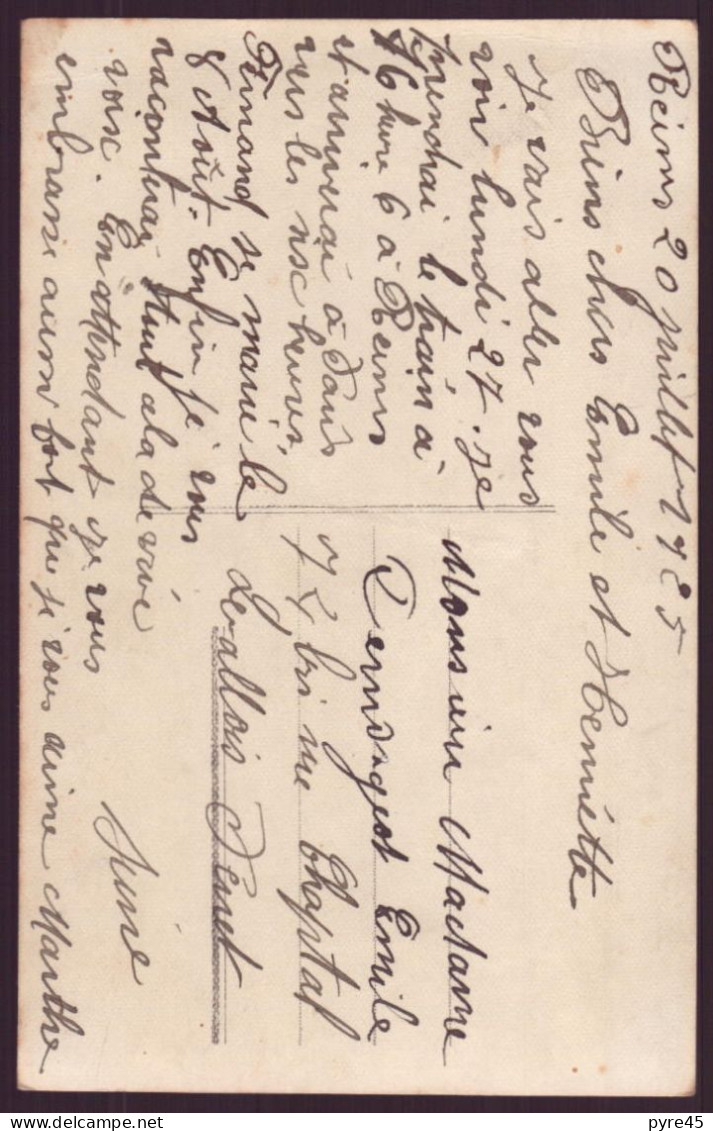 Reims 20 juillet 1925
Biens chers Emile et Henriette
Je vais aller vous
voir lundi 27. je
prendrai le train à
16 heure 6 à Reims
et arriverai à Paris
vers les heures,
Fernand se marie le
8 Août. Enfin je vous
raconterai tout a la de vive
voix. En attendant je vous
embrasse aussi fort que je vous aime Marthe
Monsieur Madame
Emile
bis rue Chaptal
Levallois Perret
Seine
pyre45